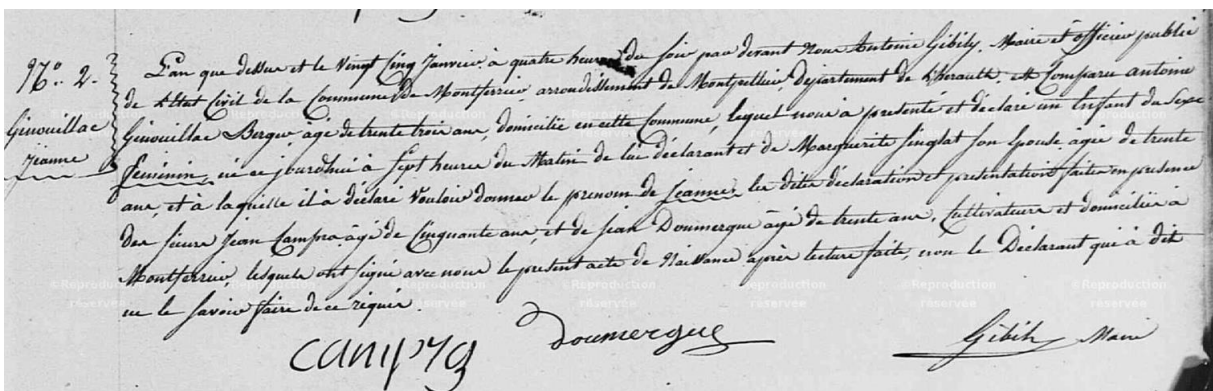 N.º 2.
Ginouillac
jeanne
L'an que dessus et le vingt cinq Janvier à quatre heures du soir par devant Nous Antoine Gibily, Maire et officier public
de l'Etat Civil de la Commune de Montferrier, arrondissement de Montpellier, département de l'herault, est Comparu antoine
Ginouillac Berger, agé de trente trois ans, domicilié en cette Commune, lequel nous à presenté et déclaré un Enfant du Sexe
feminin, né ce jourd'hui à Sept heures du Matin de lui déclarant et de Marguerite Singlat son Epouse, agée de trente
ans, et à laquelle il à déclaré Vouloir donner le prenom de jeanne, les dites déclaration et presentation faites en presence
des sieurs Jean Campra âgé de Cinquante ans, et de jean Doumergue âgé de trente ans, Cultivateurs et domiciliés à
Montferrier lesquels ont signé avec nous le present acte de Naissance après lecture faite, non le Déclarant qui à dit
ne le savoir faire de ce requis.
campra Doumergue Gibily Maire
© Reproduction réservée